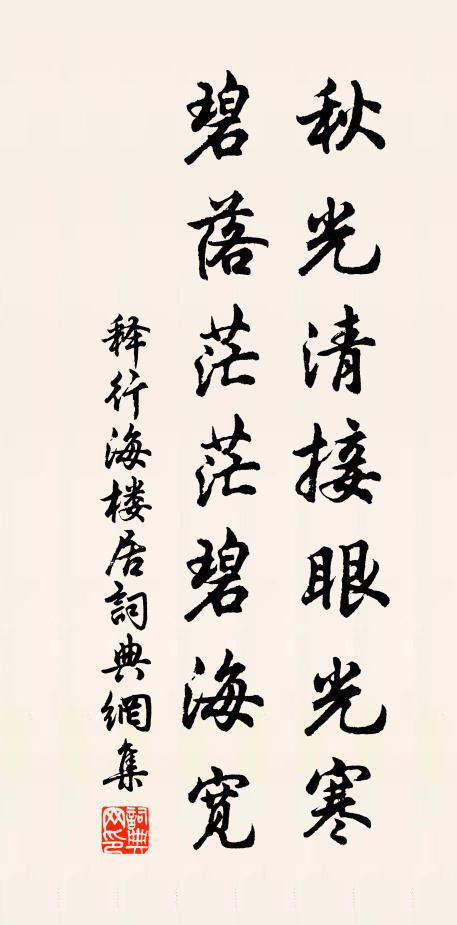 秋光清接眼光寒
碧落茫茫碧海宽
释行海楼居詞典網集
詞典网印